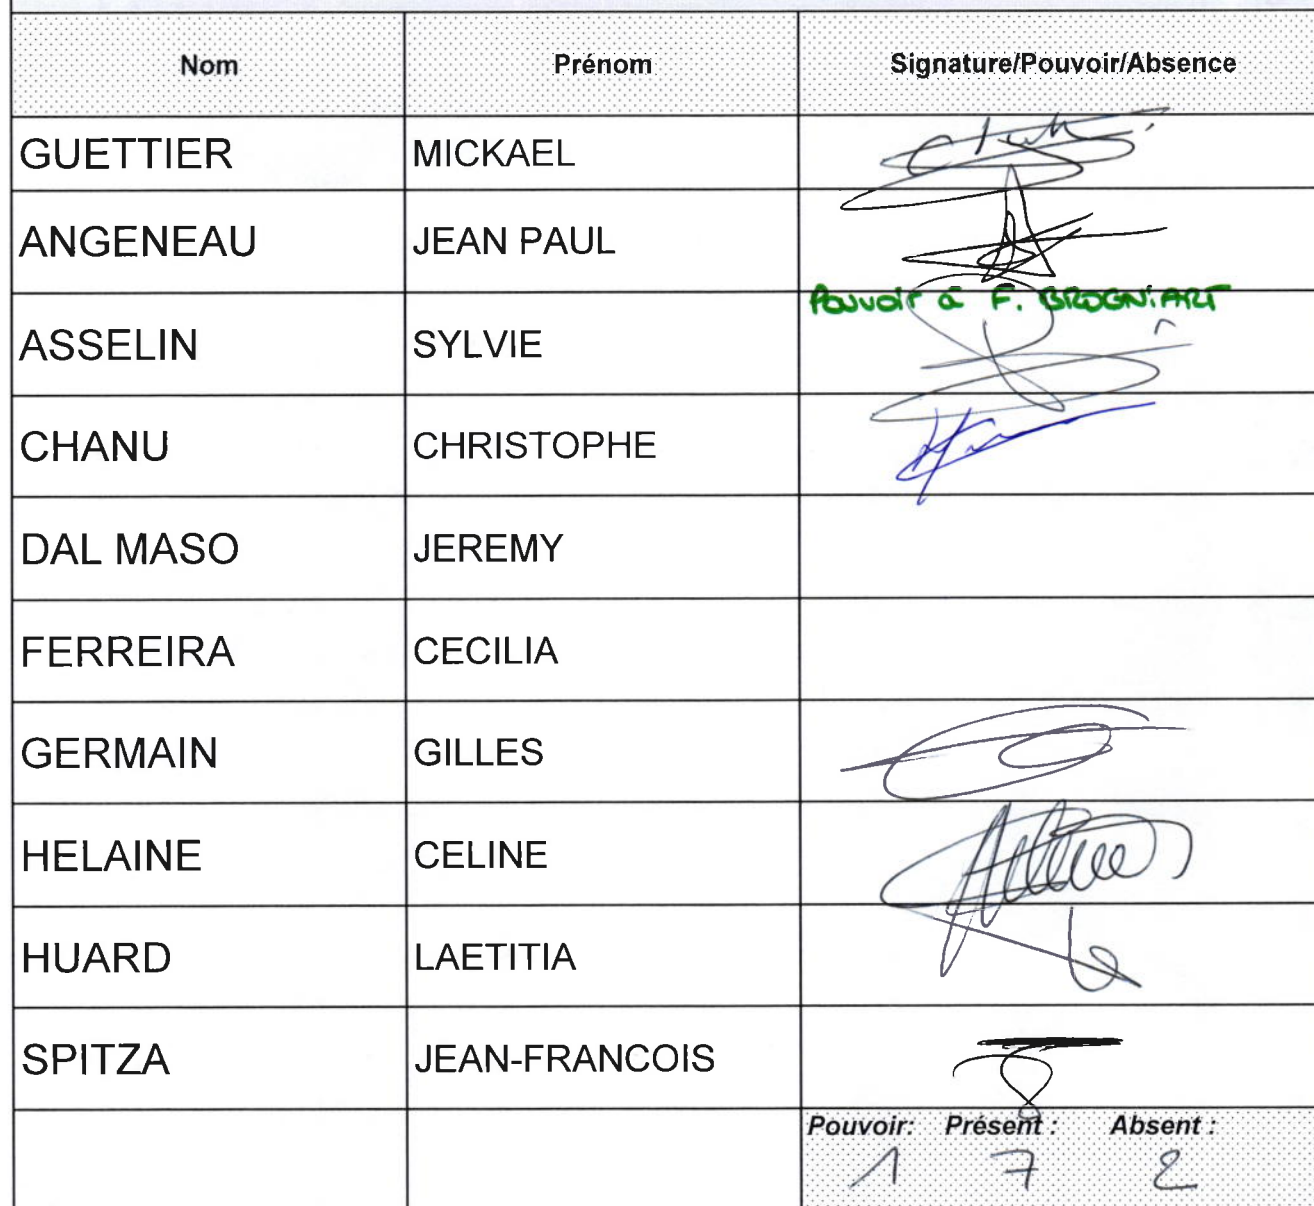 Nom Prénom Signature/Pouvoir/Absence
GUETTIER MICKAEL
ANGENEAU JEAN PAUL
Pouvoir à F. BROGNiART
ASSELIN SYLVIE
CHANU CHRISTOPHE
DAL MASO JEREMY
FERREIRA CECILIA
GERMAIN GILLES
HELAINE CELINE
HUARD LAETITIA
SPITZA JEAN-FRANCOIS
Pouvoir: Présent : Absent :
1 7 2